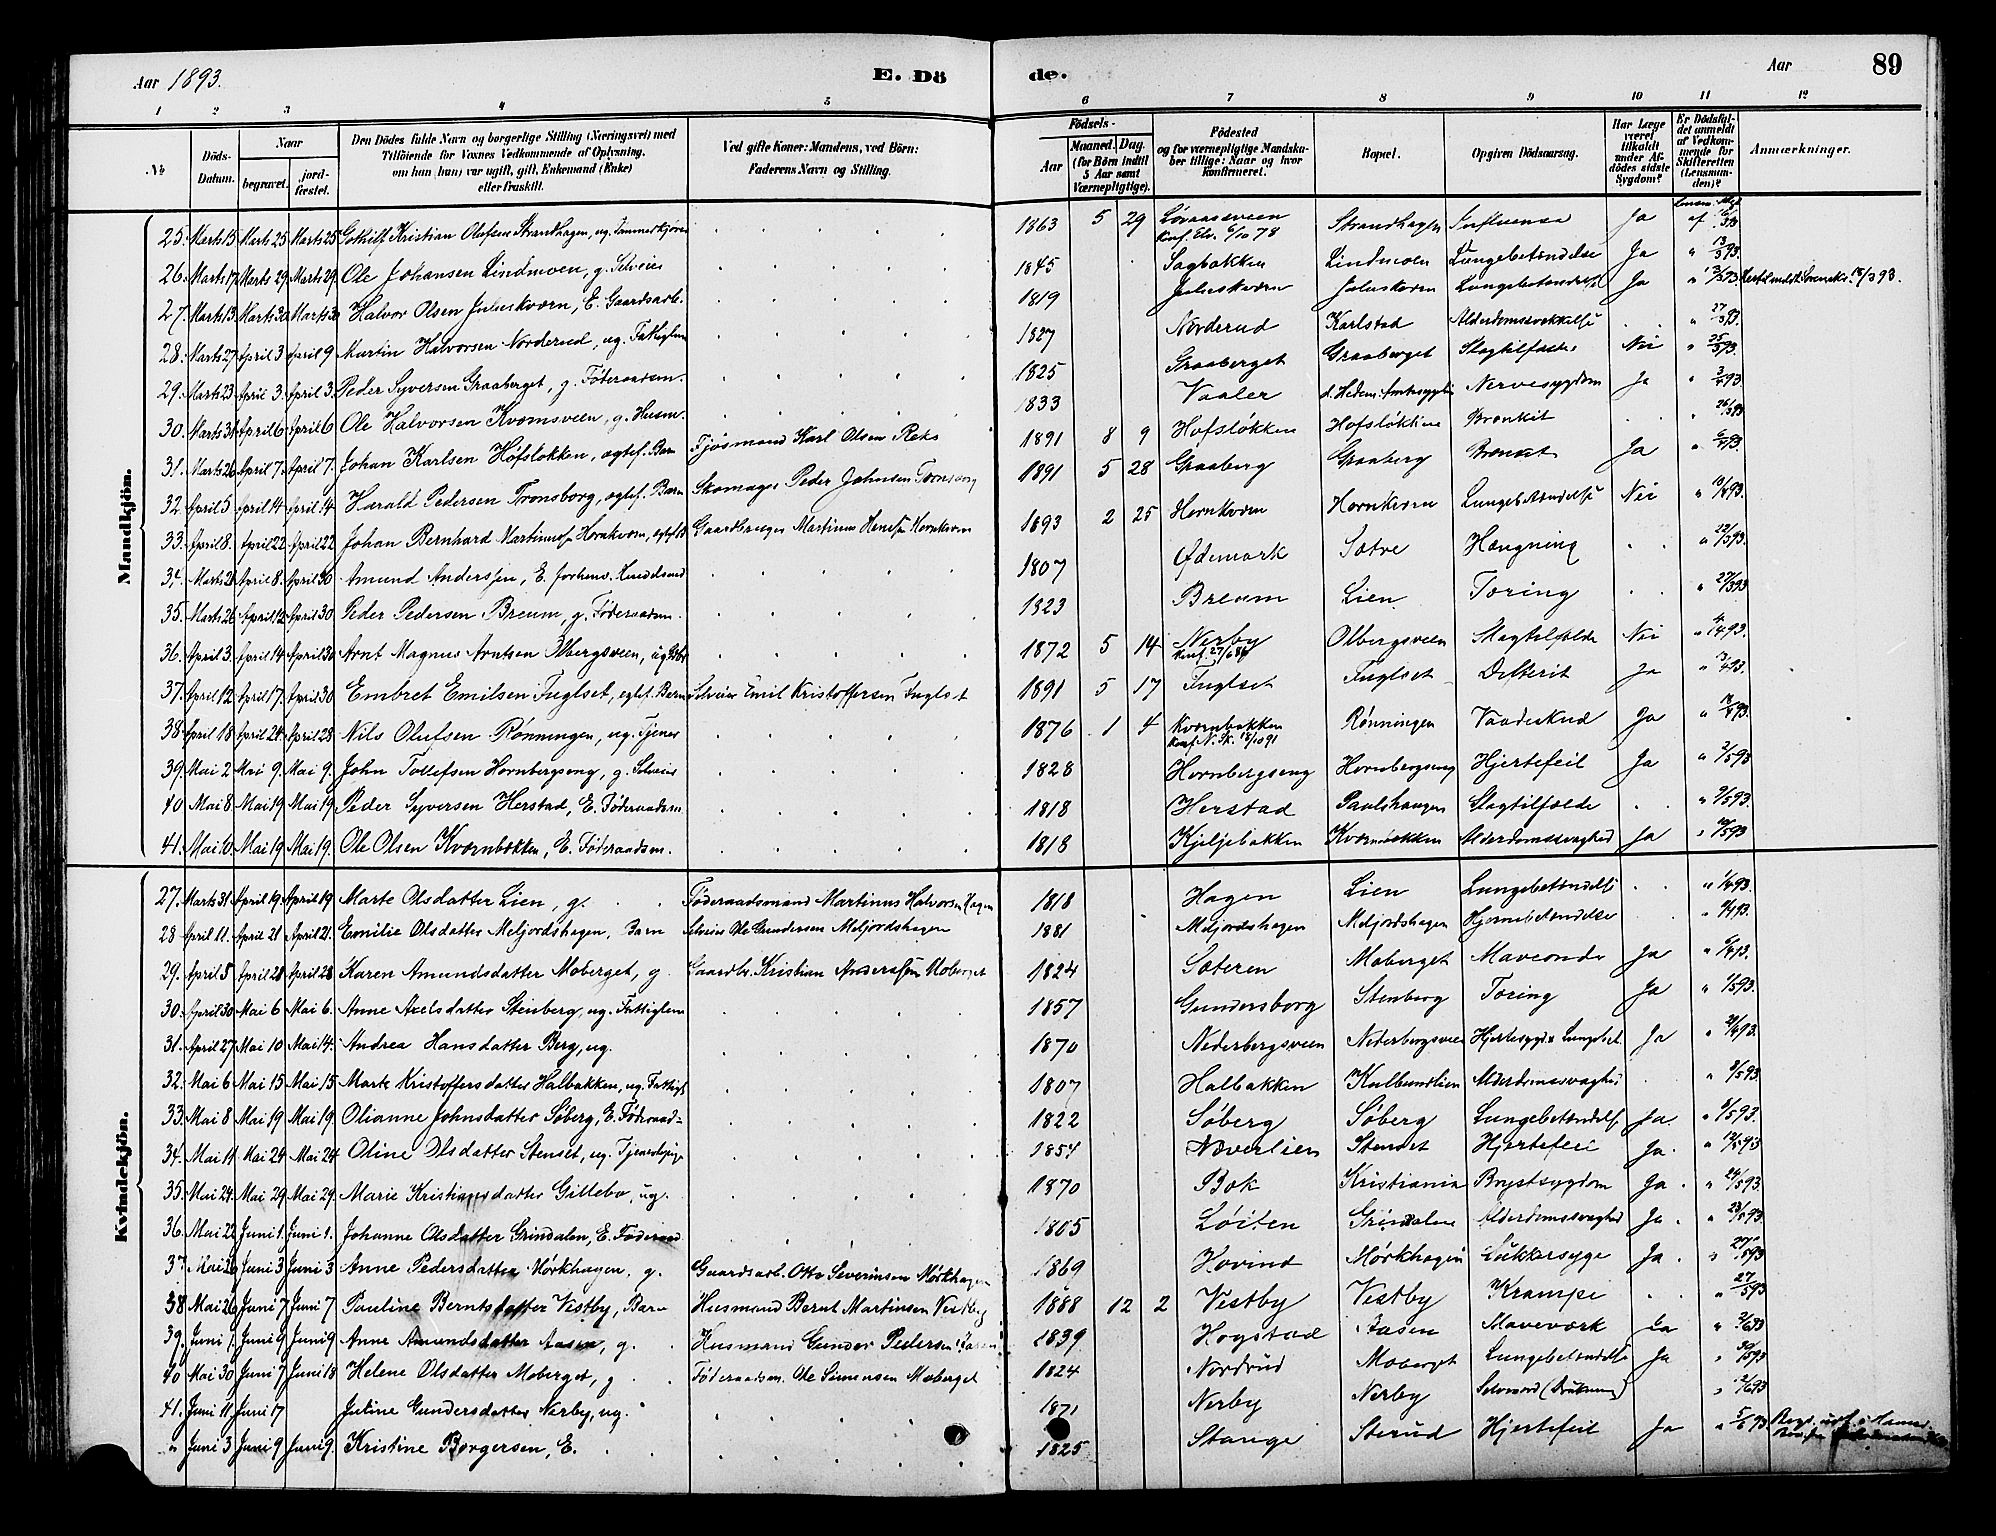 Aar 1893. E. Dö de. Aar 89
1 2 3 4 5 6 7 8 9 10 11 12
№ Döds-Datum. Naar begravet. jordfæstet. Den Dödes fulde Navn og borgerlige Stilling (Næringsvei) med Tilföiende for Voxnes Vedkommende af Oplysning, om han (hun) var ugift, gift, Enkemand (Enke) eller fraskilt. Ved gifte Koner: Mandens, ved Börn: Faderens Navn og Stilling. Födsels- Aar Maaned. Dag. (for Börn indtil 5 Aar samt Værnepligtige). Födested og for værnepligtige Mandskaber tillige: Naar og hvor konfirmeret. Bopæl. Opgiven Dödsaarsag. Har Læge været tilkaldt under Afdödes sidste Sygdom? Er Dödsfaldet anmeldt af Vedkommende for Skifteretten (Lensmanden)? Anmærkninger.
Mandkjön.
25. Marts 15 Marts 25 Marts 25 Gothilf Kristian Olufsen Strandhagen, ug. Tömmerkjörer 1863 5 29 Løvaasveen Konf. Elv. 6/10 78 Strandhagen Influensa Ja
26. Marts 17 Marts 29 Marts 29. Ole Johansen Lindmoen, g. Selveier 1845 Sagbakken Lindmoen Lungebetændelse Ja
27. Marts 13. Marts 30 Marts 30 Halvor Olsen Juluskværn, E. Gaardsarb. 1819 Juluskværn Juluskværn Lungebetændelse Ja
28. Marts 27 April 3 April 9 Martin Halvorsen Norderud, ug. Fattiglem 1827 Norderud Karlstad Alderdomssvækkelse " 27/3 93.
29. Marts 23 April 3. April 3. Peder Syversen Graaberget, g. Föderaadsm. 1825 Graaberget Graaberget Slagtilfælde Nei " 25/3 93.
30. Marts 31 April 6 April 6 Ole Halvorsen Kvernsveen, g. Husm. 1833 Vaaler d. Hedem. Amtssygeh. Nervesygdom Ja " 3/4 93
31. Marts 26 April 7. April 7. Johan Karlsen Hofsløkken, ægtef. Barn Fjøsmand Karl Olsen Reks 1891 8 9 Hofsløkken Hofsløkken Bronkit " 26/3 93
32. April 5 April 14 April 14 Harald Pedersen Tronsborg, ægtef. Barn Skomager Peder Johnsen Tronsborg 1891 5 28 Graaberg Graaberg Bronkit Ja " 6/4 93.
33. April 8. April 22 April 22 Johan Bernhard Martinussen Hornkværn, ægtef. B. Gaardbruger Martinus Hornkværn 1893 2 25 Hornkværn Hornkværn Lungebetændelse Nei " 10/4 93.
34. Marts 21 April 8. April 30 Amund Anderssen, E. forhenv. Handelsmand 1807 Ødemark Sætre Hængning " 22/3 93.
35. Marts 26 April 12 April 30 Peder Pedersen Breum, g. Föderaadsm. 1823 Breum Lien Tæring " 27/3 93
36. April 3 April 14 April 30 Arnt Magnus Arntsen Olbergsveen, ug. 1872 5 14 Nerby Konf. Olbergsveen Slagtilfælde Nei " 4/4 93.
37. April 12 April 17. April 30 Embret Emilsen Fuglset, ægtef. Barn Selveier Emil Kristoffersen Fuglset 1891 5 17 Fuglset Fuglset Difterit Ja " 13/4 93.
38. April 18 April 24. April 28 Nils Olufsen Rønningen, ug. Tjener 1876 1 4 Kværnbakken Konf. N. Sk. 18/10 91 Rønningen Vaadeskud Ja
39. Mai 2 Mai 9. Mai 9. John Tollefsen Hornbergseng, g. Selveier 1828 Hornbergseng Hornbergseng Hjertefeil Ja " 2/5 93
40 Mai 8 Mai 19 Mai 19 Peder Syversen Herstad, E. Föderaadsm. 1818 Herstad Paulshaugen Slagtilfælde " 9/5 93.
41. Mai 10. Mai 19 Mai 19. Ole Olsen Kværnbakken, E. Föderaadsm. 1818 Kjeljebakken Kværnbakken Alderdomssvaghed Ja " 10/5 93
Kvindekjön.
27. Marts 31 April 19. April 19 Marte Olsdatter Lien, g. Föderaadsmand Martinus Halvorsen Hagen 1818 Hagen Lien Lungebetændelse " 1/4 93.
28 April 11. April 21 April 21. Emilie Olsdatter Meljordshagen, Barn Selveier Ole Gundersen Meljordshagen 1881 Meljordshagen Meljordshagen Hjernebetændelse
29. April 5 April 28 April 28 Karen Amundsdatter Moberget, g. Gaardbr. Kristian Anderssen Moberget 1824 Sæteren Moberget Maveonde Ja " 6/4 93.
30. April 30 Mai 6 Mai 6. Anne Axelsdatter Stenberg, ug. Fattiglem 1857 Gundersborg Stenberg Tæring Ja " 1/5 93.
31. April 27 Mai 10 Mai 14. Andrea Hansdatter Berg, ug. 1870 Nederbergsveen Nederbergsveen Hjertesygd. & Lungebet. Ja " 28/4 93.
32. Mai 6 Mai 15 Mai 15 Marte Kristoffersdatter Halbakken, ug. Fattigl. 1807 Halbakken Kulbundlien Alderdomssvaghed
33. Mai 8 Mai 19 Mai 19. Olianne Johnsdatter Søberg, E. Föderaad- 1822 Søberg Søberg Lungebetændelse Ja
34. Mai 11 Mai 24 Mai 24 Oline Olsdatter Stenset, ug. Tjenestepige 1854 Noverlien Stenset Hjertefeil Ja.
35. Mai 24. Mai 29 Mai 29. Marie Kristiansdatter Gillebo, ug. 1870 Bok Kristiania Brystsygdom Ja. " 24/5 93.
36. Mai 22 Juni 1. Juni 1. Johanne Olsdatter Grindalen, E. Föderaad 1805 Løiten Grindalen Alderdomssvaghed Ja. " 23/5 93.
37. Mai 26 Juni 3 Juni 3 Anne Pedersdatter Mörkhagen, g. Gaardsarb. Otto Severinsen Mörkhagen 1869 Hovind Mørkhagen Sukkersyge Ja. " 27/5 93
38 Mai 26 Juni 7 Juni 7 Pauline Berntsdatter Vestby, Barn Husmand Bernt Martinsen Vestby 1888 12 2 Vestby Vestby Krampe " 27/5 93
39. Juni 1. Juni 9 Juni 9 Anne Amundsdatter Aasen, g. Husmand Gunder Pedersen Aasen 1839 Hogstad Aasen Maveværk Ja " 2/6 93
40 Mai 30 Juni 7 Juni 18 Helene Olsdatter Moberget, g Föderaadsm. Ole Simensen Moberget 1824 Nordrud Moberget Lungebetændelse Ja " 30/5 93
41. Juni 11 Juni 17 Juline Gundersdatter Nerby, ug. 1871 Nerby Nerby Selvmord " 12/6 93
" Juni 3 Juni 9 Juni 9. Kristine Borgersen, E. 1825 Stange Sterud Hjertefeil Ja " 5/6 93